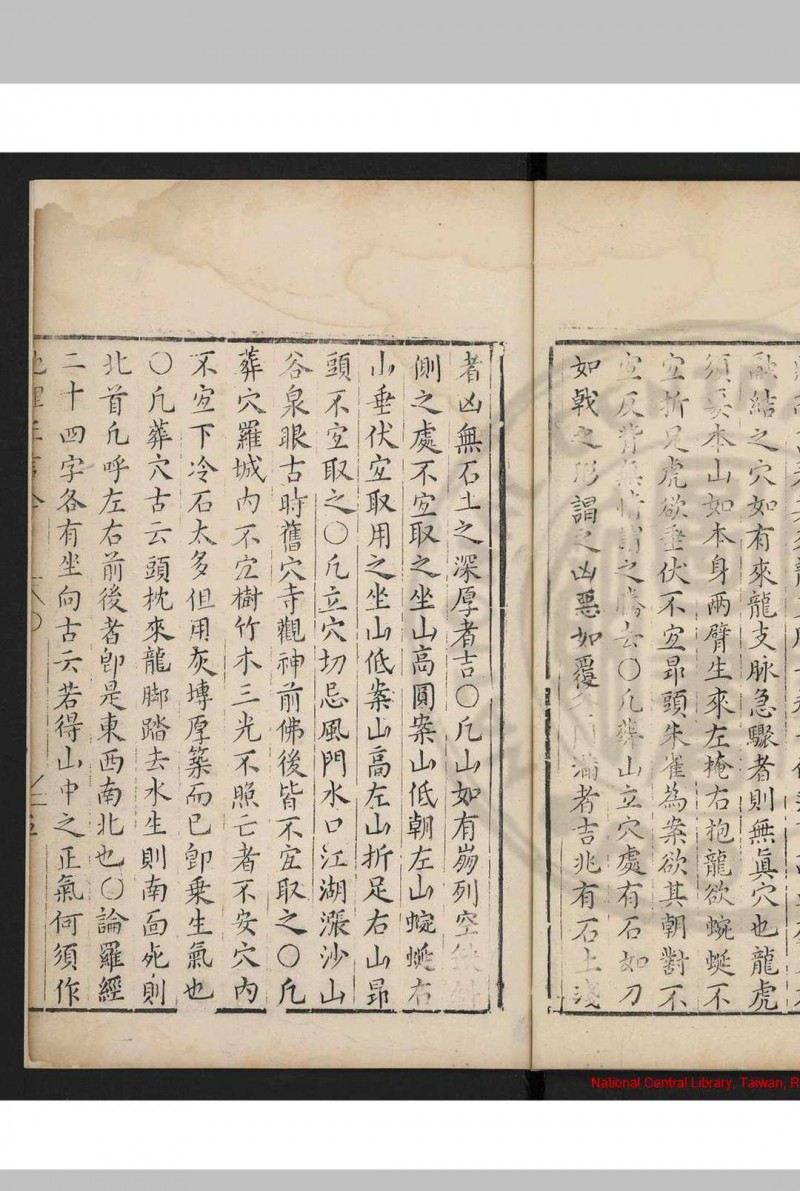 融結之穴如有來龍支脉急驟者則無眞穴也龍虎
須本山如本身兩臂生來左掩右抱龍欲蜿蜒不
宐折足虎欲垂伏不宐昻頭朱雀為案欲其朝對不
宐反背無情謂之去〇凢葬山立穴處有石如刀
如戟之形謂之凶惡如覆滿者吉兆有石土淺
者凶無石土之深厚者吉〇凢山如有崩列空
側之處不宐取之坐山高圓案山低朝左山蜿蜒右
山垂伏宐取用之坐山低案山高左山折足右山昻
頭不宐取之〇凢立穴切忌風門水口江湖漲沙山
谷泉眼古時舊穴寺觀神前佛後皆不宐取之〇凢
葬穴羅城內不宐樹竹木三光不照亡者不安穴內
不宐下冷石太多但用灰塼厚築而已卽乗生氣也
〇凢葬穴古云頭枕來龍脚踏去水生則南面死則
北首凢呼左右前後者卽是東西南北也〇論羅經
二十四字各有坐向古云若得山中之正氣何須作
National Central Library, Taiwan, R